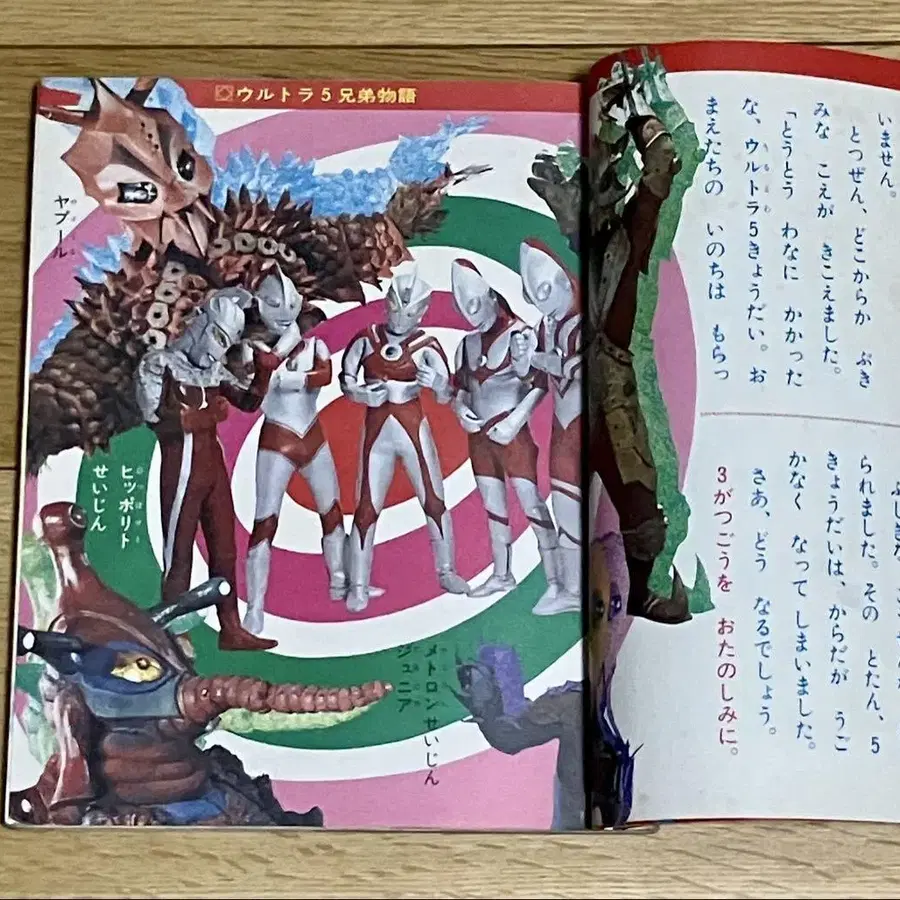 ウルトラ5兄弟物語
ヤプール
ヒッポリト
せいじん
メトロンせいじん
ジュニア
いません。
とつぜん、どこからか ぶき
みな こえが きこえました。
「とうとう わなに かかった
な、ウルトラ5きょうだい。お
まえたちの いのちは もらっ
られました。その とたん、5
きょうだいは、からだが うご
かなく なって しまいました。
さあ、どう なるでしょう。
3がつごうを おたのしみに。